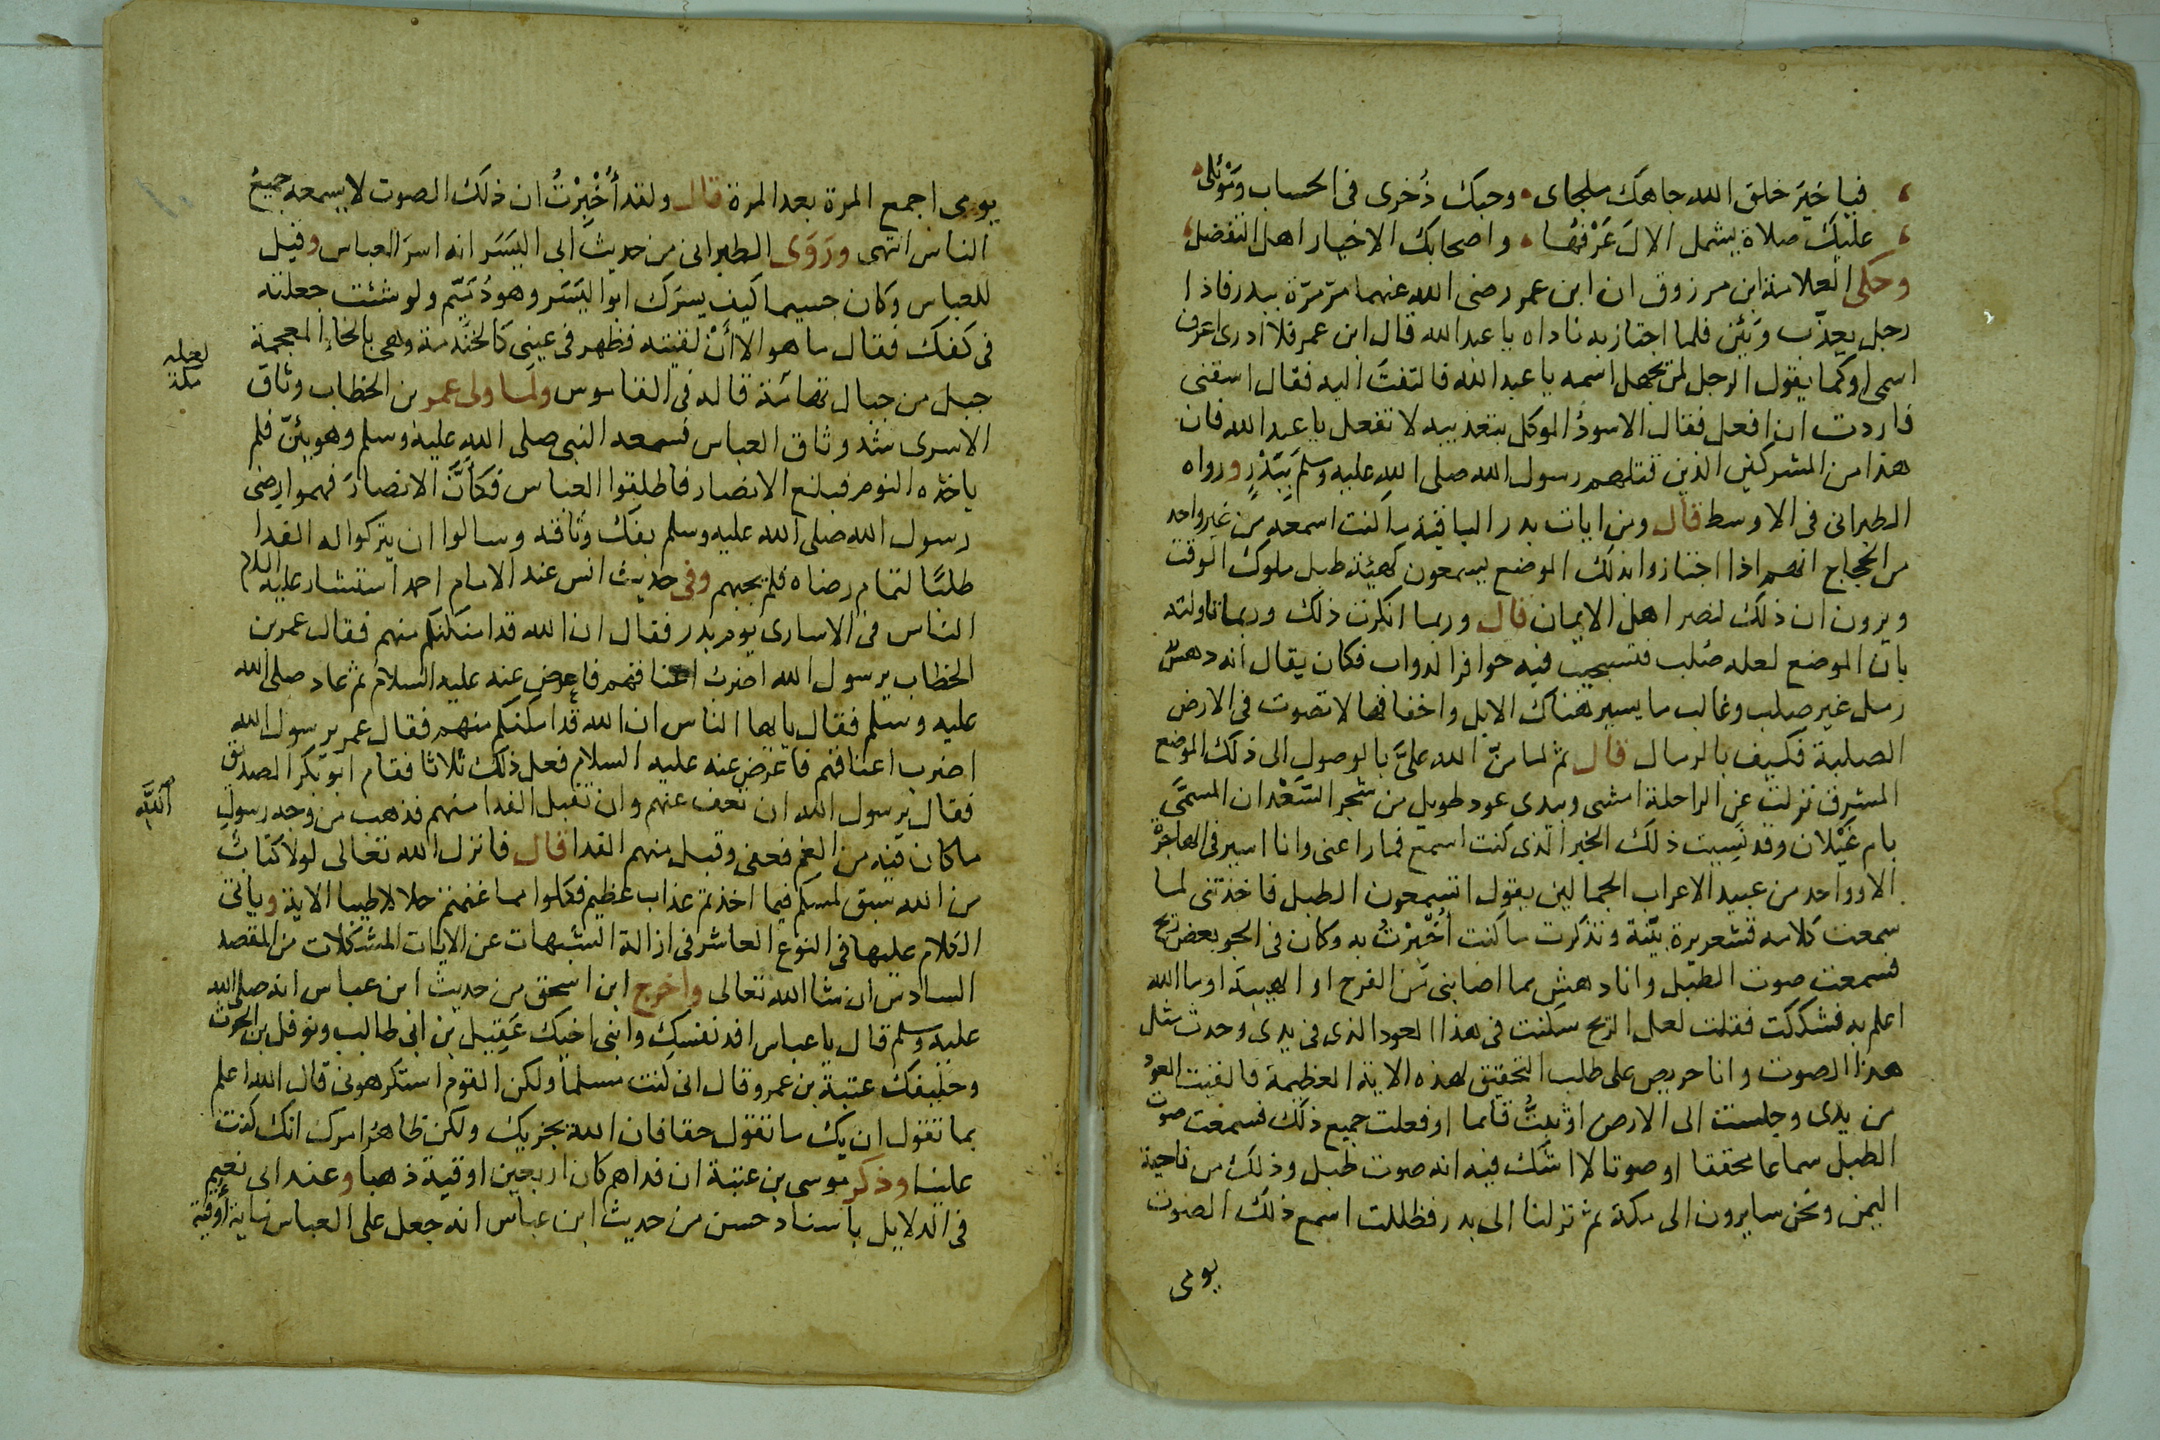 فيا خيرَ خلق الله جاهك ملجاى وحبك ذُخرى فى الحساب ومَوْئلى
عليك صلاة يشمل الالَ عَرْفُها واصحابك الاخيار اهل التفضل
وحكى العلامة ابن مرزوق ان ابن عمر رضى الله عنهما مرّ مرّة ببدر فاذا
رجل يعذّب ويَئن فلما اجتاز به ناداه يا عبد الله قال ابن عمر فلا ادرى اعرف
اسمى او كما يقول الرجل لمن يجهل اسمه يا عبد الله فالتفتَ اليه فقال اسقنى
فاردت ان افعل فقال الاسودُ الموكل بتعذيبه لا تفعل يا عبد الله فان
هذا من المشركين الذين قتلهم رسول الله صلى الله عليه وسلم ببَدْرٍ ورواه
الطبرانى فى الاوسط قال ومن ايات بدر الباقية ما كنت اسمعه من غير واحد
من الحجاج انهم اذا اجتازوا بذلك الموضع يسمعون كهيئة طبل ملوك الوقت
ويرون ان ذلك لنصر اهل الايمان قال وربما انكرت ذلك وربما تاولته
بان الموضع لعله صُلب فتستجيب فيه حوافر الدواب فكان يقال انه دهسٌ
رمل غير صلب وغالب ما يسير هناك الابل واخفافها لا تصوت فى الارض
الصلبة فكيف بالرمال قال ثم لما منّ الله علىَّ بالوصول الى ذلك الموضع
المشرف نزلت عن الراحلة امشى وبيدى عود طويل من شجر السَّعْدان المسمَّى
بام غَيْلان وقد نَسِيت ذلك الخبر الذى كنت اسمع فما راعنى وانا اسير فى الهاجرة
الا وواحد من عبيد الاعراب الجمالين يقول اتسمعون الطبل فاخذتنى لما
سمعت كلامه قشعريرة بيّنة وتذكرت ما كنت أُخْبِرْتُ به وكان فى الجو بعض ريح
فسمعت صوت الطبل وانا دهش مما اصابنى من الفرح او الهيبة او ما الله
اعلم به فشككت فقلت لعل الريح سكنت فى هذا العود الذى فى يدى وحدث مثل
هذا الصوت وانا حريص على طلب التحقيق لهذه الاية العظيمة فالقيت العودَ
من يدى وجلست الى الارض او ثبتُّ قائما او فعلت جميع ذلك فسمعت صوت
الطبل سماعا محققا او صوتا لا اشك فيه انه صوت طبل وذلك من ناحية
اليمن ونحن سايرون الى مكة ثم نزلنا الى بدر فظللت اسمع ذلك الصوت
يومى
يومى اجمع المرة بعد المرة قال ولقد أُخْبِرْتُ ان ذلك الصوت لا يسمعه جميعُ
الناس انتهى ورَوَى الطبرانى من حديث ابى اليسَر انه اسرَ العباس وقيل
للعباس وكان جسيما كيف يسرَك ابو اليَسَر وهو دَميم ولو شئت جعلته
فى كفك فقال ما هو الا أنْ لقيته فظهر فى عينى كالخَنْدمة وهى بالخاء المعجمة
جبل من جبال تهامَة قاله فى القاموس ولما ولى عمر بن الخطاب وثاق
لعله
مكة
الاسرى شد وثاق العباس فسمعه النبى صلى الله عليه وسلم وهو يئنّ فلم
ياخذه النوم فبلغ الانصار فاطلقوا العباس فكأنَّ الانصارَ فهموا رضى
رسول الله صلى الله عليه وسلم بفك وثاقه وسالوا ان يتركوا له الفدا
طلبًا لتمام رضاه فلم يجبهم وفى حديث انس عند الامام احمد استشار عليه السلام
الناس فى الاسارى يوم بدر فقال ان الله قد امكنكم منهم فقال عمر بن
الخطاب يرسول الله اضرب اعناقهم فاعرض عنه عليه السلام ثم عاد صلى الله
عليه وسلم فقال يا ايها الناس ان الله قد امكنكم منهم فقال عمر يرسول الله
اضرب اعناقهم فاعرَض عنه عليه السلام فعل ذلك ثلاثا فقام ابو بكر الصديق
فقال يرسول الله ان تعف عنهم وان تقبل الفدا منهم فذهب من وجه رسولِ
اللَّهِ
ما كان فيه من الغم فعفى وقبل منهم الفدا قال فانزل الله تعالى لولا كتاب
من الله سبق لمسكم فيما اخذتم عذاب عظيم فكلوا مما غنمتم حلالا طيبا الاية وياتى
الكلام عليها فى النوع العاشر فى ازالة الشبهات عن الايات المشكلات من المقصد
السادس ان شا الله تعالى واخرج ابن اسحق من حديث ابن عباس انه صلى الله
عليه وسلم قال يا عباس افد نفسك وابنى اخيك عَقِيل بن ابى طالب ونوفل بن الحرث
وحليفك عتبة بن عمرو قال انى كنت مسلما ولكن القوم استكرهونى قال الله اعلم
بما تقول ان يك ما تقول حقا فان الله يجزيك ولكن ظاهرُ امرك انك كنت
علينا وذكر موسى بن عقبة ان فداهم كان اربعين اوقية ذهبا وعند ابى نعيم
فى الدلايل باسناد حسن من حديث ابن عباس انه جعل على العباس ماية أوقية